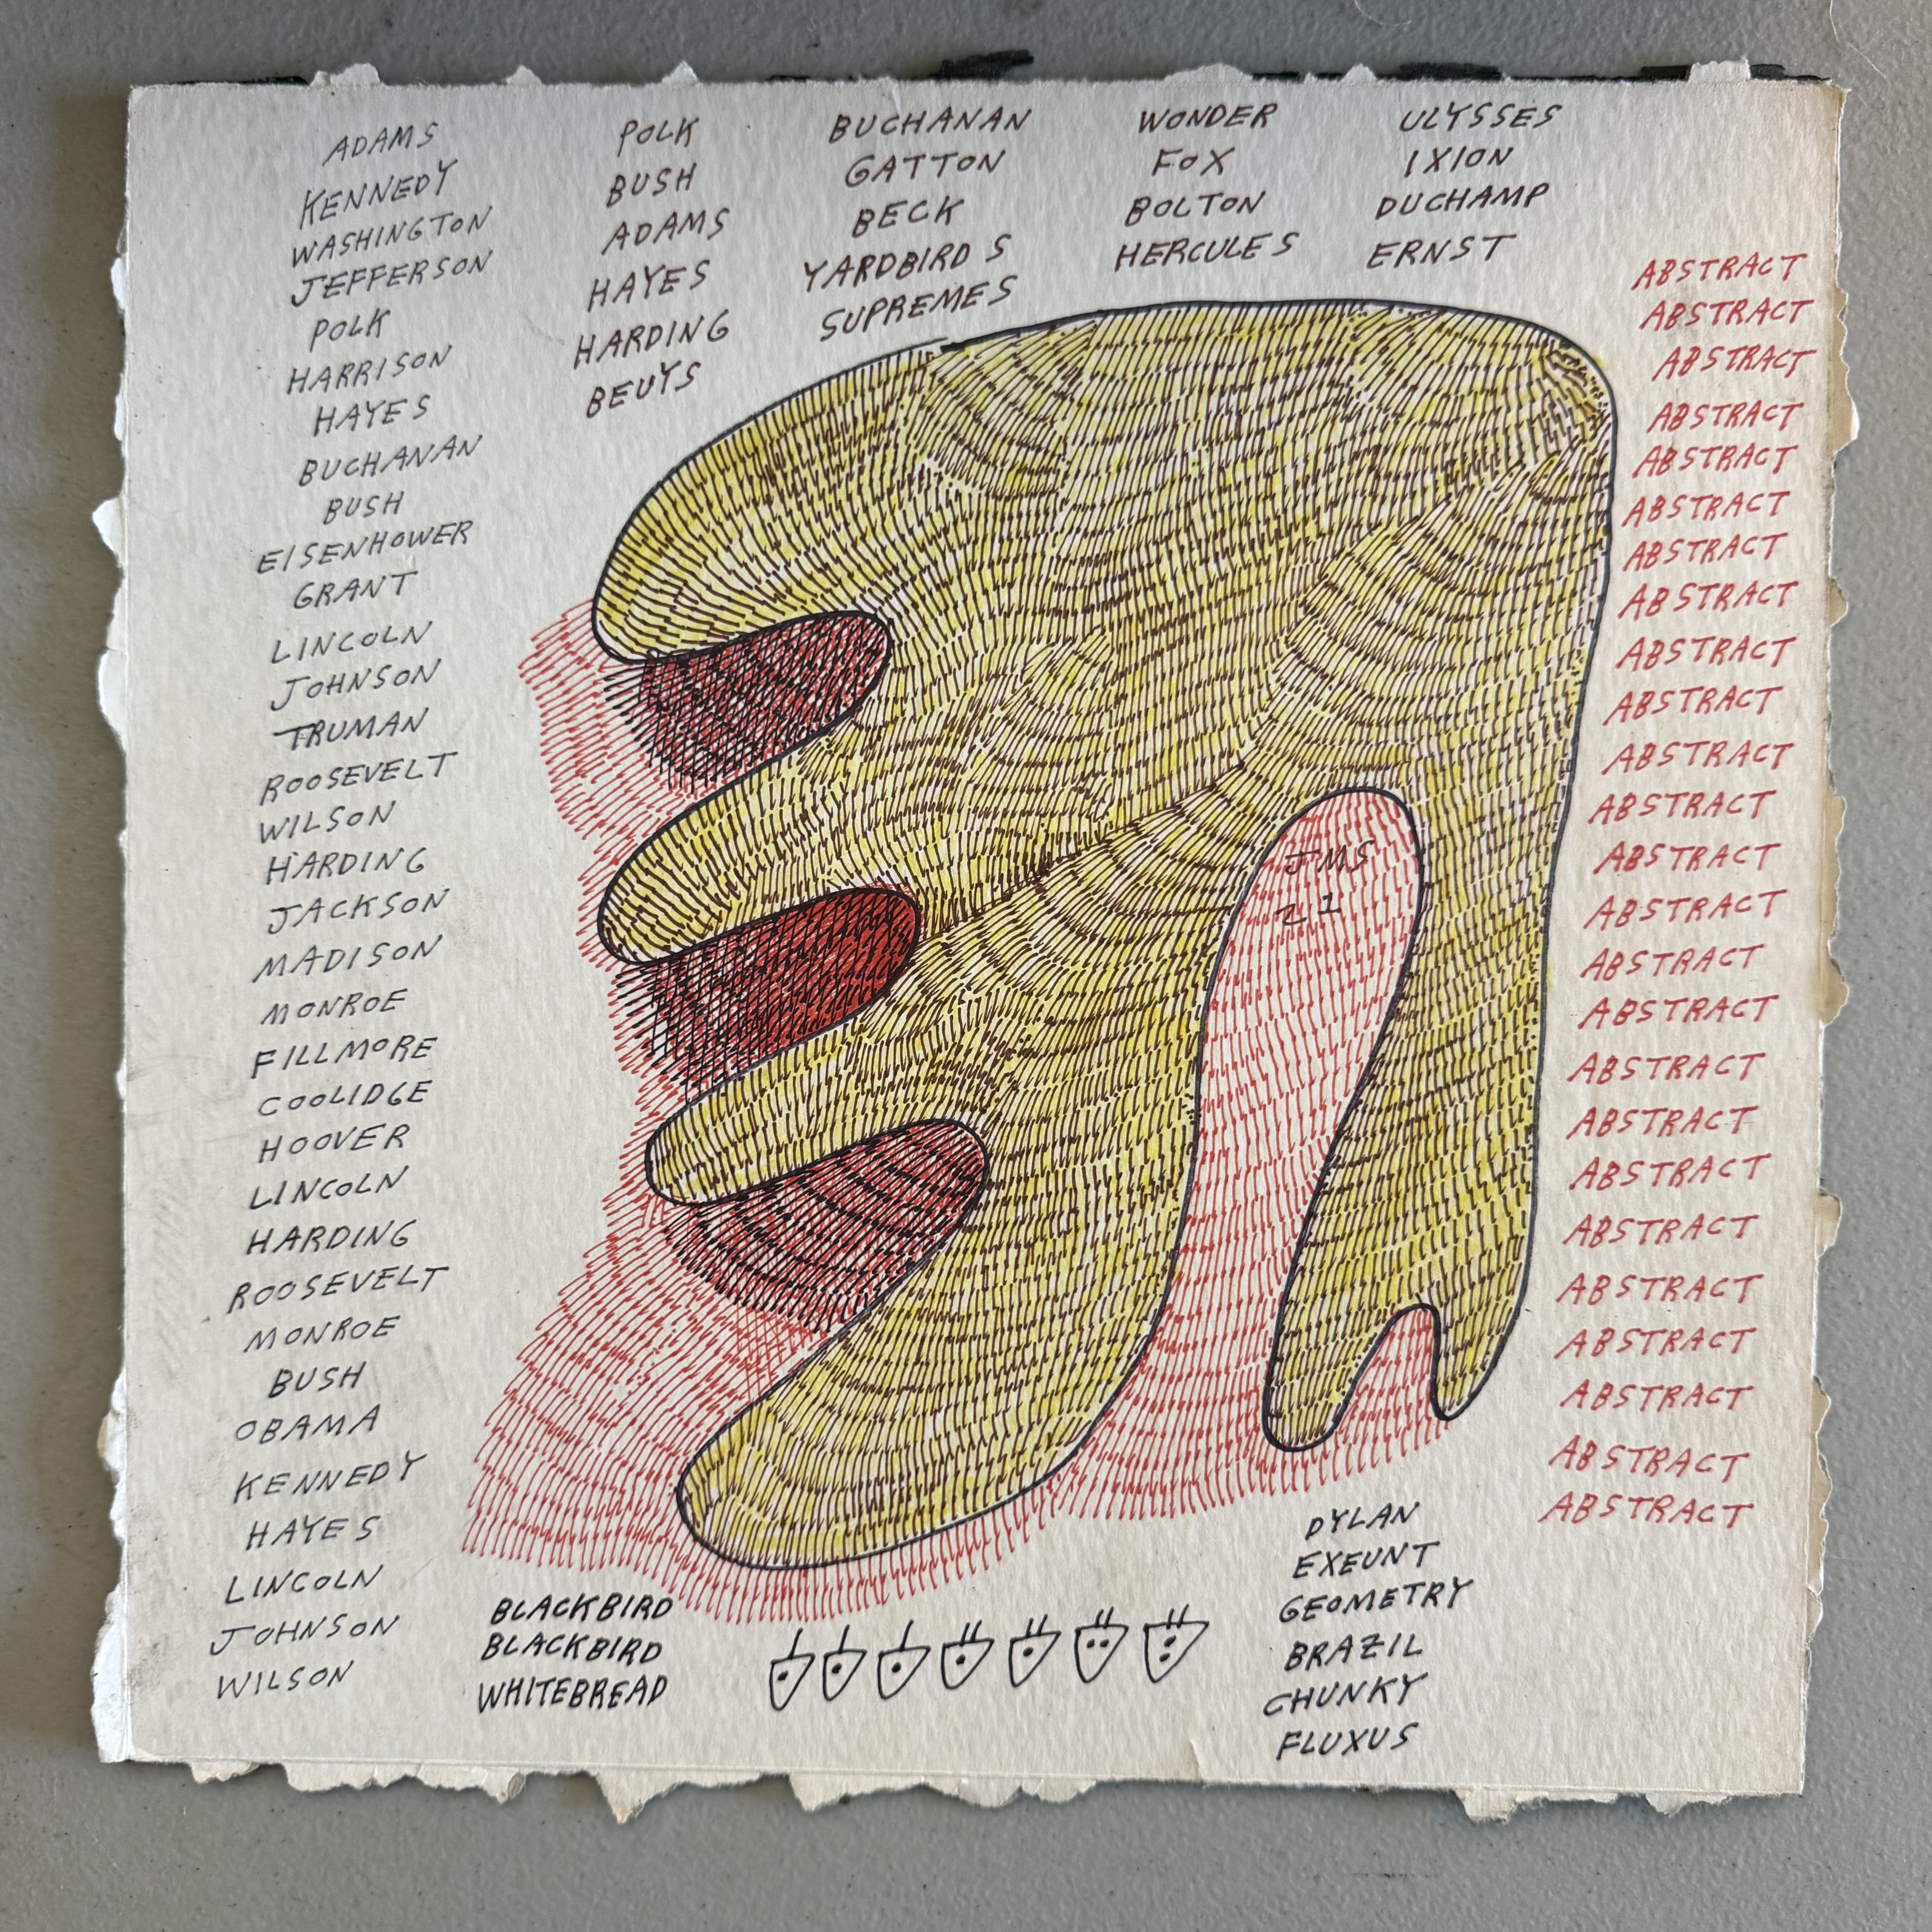 ADAMS
KENNEDY
WASHINGTON
JEFFERSON
POLK
HARRISON
HAYES
BUCHANAN
BUSH
EISENHOWER
GRANT
LINCOLN
JOHNSON
TRUMAN
ROOSEVELT
WILSON
HARDING
JACKSON
MADISON
MONROE
FILLMORE
COOLIDGE
HOOVER
LINCOLN
HARDING
ROOSEVELT
MONROE
BUSH
OBAMA
KENNEDY
HAYES
LINCOLN
JOHNSON
WILSON
POLK
BUSH
ADAMS
HAYES
HARDING
BEUYS
BUCHANAN
GATTON
BECK
YARDBIRDS
SUPREMES
WONDER
FOX
BOLTON
HERCULES
ULYSSES
IXION
DUCHAMP
ERNST
ABSTRACT
ABSTRACT
ABSTRACT
ABSTRACT
ABSTRACT
ABSTRACT
ABSTRACT
ABSTRACT
ABSTRACT
ABSTRACT
ABSTRACT
ABSTRACT
ABSTRACT
ABSTRACT
ABSTRACT
ABSTRACT
ABSTRACT
ABSTRACT
ABSTRACT
ABSTRACT
ABSTRACT
ABSTRACT
ABSTRACT
ABSTRACT
ABSTRACT
JMS
21
BLACKBIRD
BLACKBIRD
WHITEBREAD
DYLAN
EXEUNT
GEOMETRY
BRAZIL
CHUNKY
FLUXUS